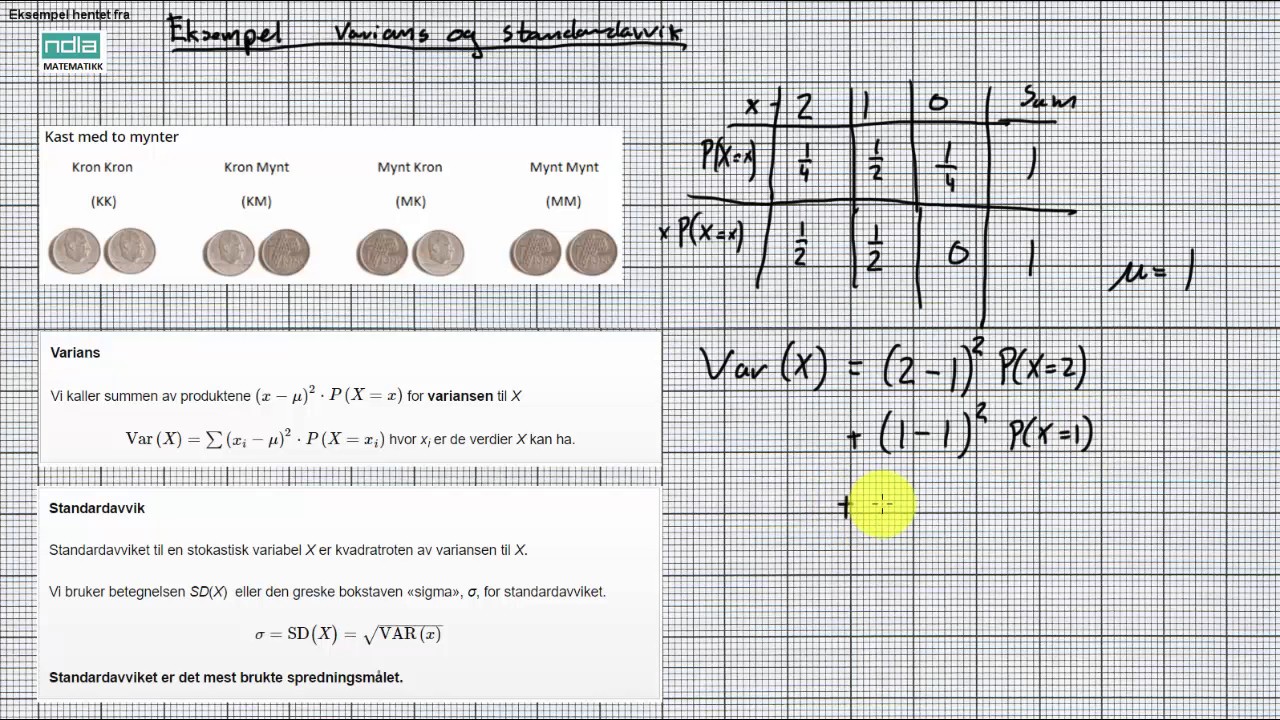 Eksempel hentet fra
ndla
MATEMATIKK
Eksempel Varians og standardavvik
Kast med to mynter
Kron Kron Kron Mynt Mynt Kron Mynt Mynt
(KK) (KM) (MK) (MM)
x 2 1 0 Sum
P(X=x) 1/4 1/2 1/4 1
x P(X=x) 1/2 1/2 0 1
μ = 1
Varians
Vi kaller summen av produktene (x − μ)² · P(X = x) for variansen til X
Var(X) = ∑(xᵢ − μ)² · P(X = xᵢ) hvor xᵢ er de verdier X kan ha.
Standardavvik
Standardavviket til en stokastisk variabel X er kvadratroten av variansen til X.
Vi bruker betegnelsen SD(X) eller den greske bokstaven «sigma», σ, for standardavviket.
σ = SD(X) = √VAR(x)
Standardavviket er det mest brukte spredningsmålet.
Var(X) = (2 − 1)² P(X=2)
+ (1 − 1)² P(X=1)
+